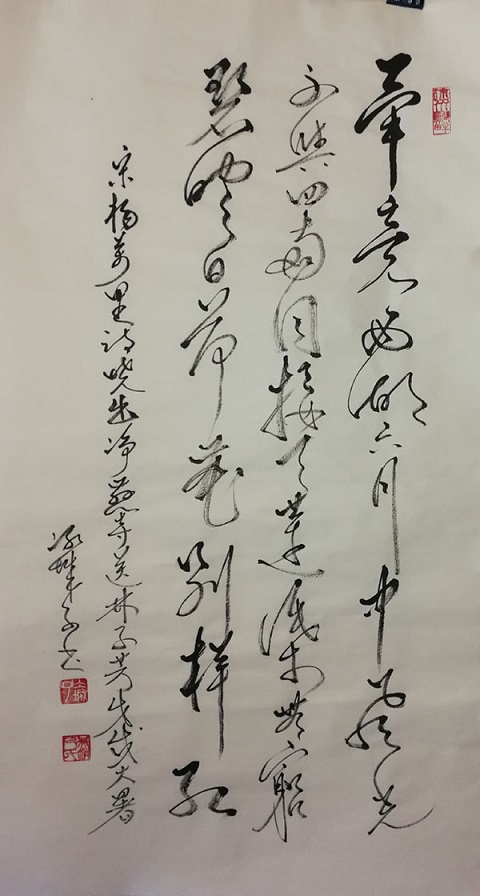 畢竟西湖六月中風光
不與四時同接天蓮葉無窮
碧映日荷花别樣红
宋楊萬里詩曉出净慈寺送林子方戊戌大暑